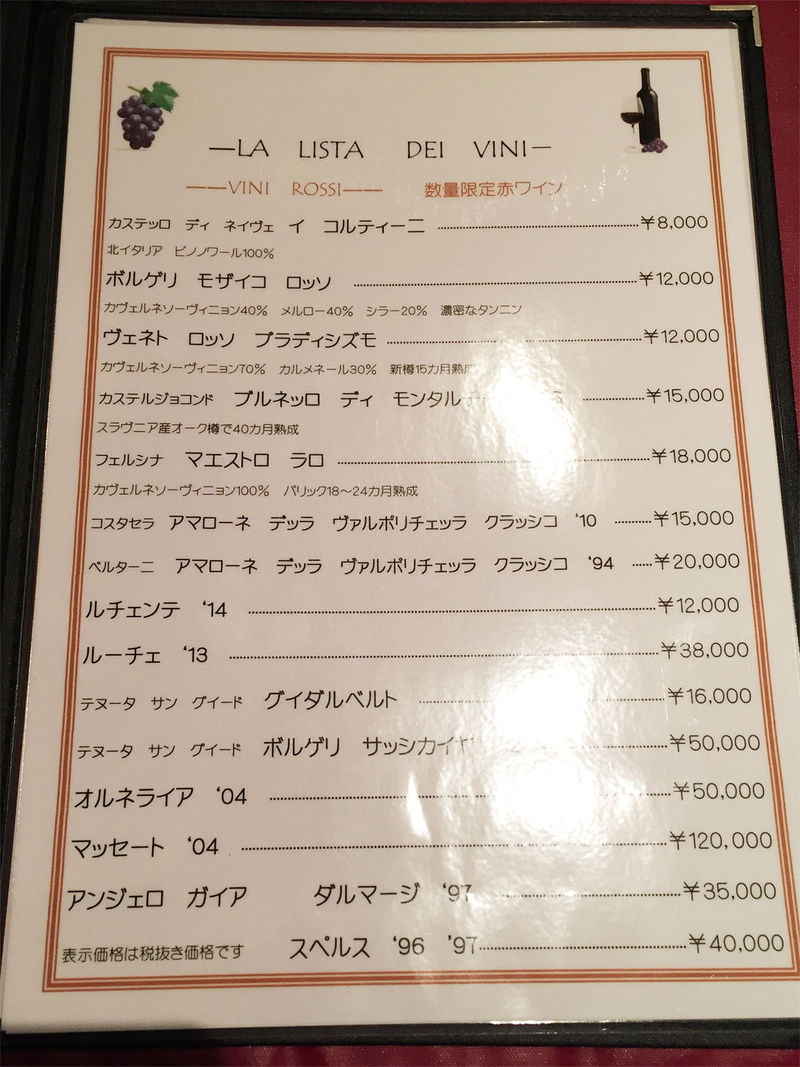 —LA LISTA DEI VINI—
——VINI ROSSI—— 数量限定赤ワイン
カステッロ ディ ネイヴェ イ コルティーニ ……¥8,000
北イタリア ピノノワール100%
ボルゲリ モザイコ ロッソ ……¥12,000
カヴェルネソーヴィニョン40% メルロー40% シラー20% 濃密なタンニン
ヴェネト ロッソ ブラディシズモ ……¥12,000
カヴェルネソーヴィニョン70% カルメネール30% 新樽15カ月熟成
カステルジョコンド ブルネッロ ディ ……¥15,000
スラヴニア産オーク樽で40カ月熟成
フェルシナ マエストロ ラロ ……¥18,000
カヴェルネソーヴィニョン100% バリック18～24カ月熟成
コスタセラ アマローネ デッラ ヴァルポリチェッラ クラッシコ ‘10 ……¥15,000
ベルターニ アマローネ デッラ ヴァルポリチェッラ クラッシコ ‘94 ……¥20,000
ルチェンテ ‘14 ……¥12,000
ルーチェ ‘13 ……¥38,000
テヌータ サン グイード グイダルベルト ……¥16,000
テヌータ サン グイード ボルゲリ サッシカイヤ ……¥50,000
オルネライア ‘04 ……¥50,000
マッセート ‘04 ……¥120,000
アンジェロ ガイア ダルマージ ‘97 ……¥35,000
表示価格は税抜き価格です スペルス ‘96 ‘97……¥40,000